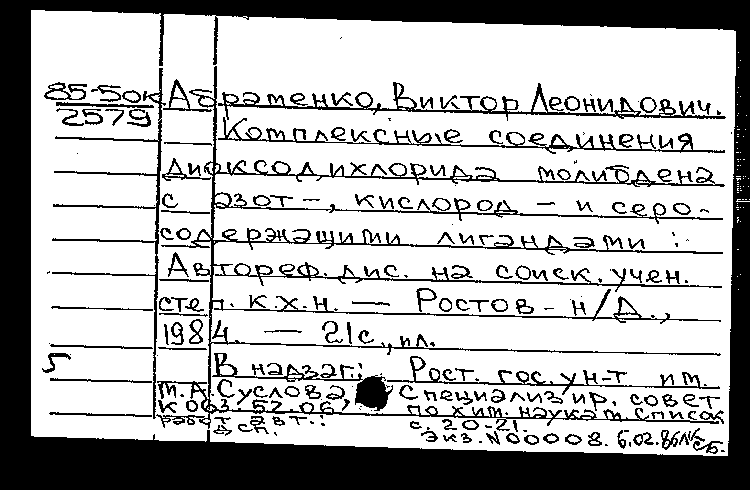 85-5ок Абраменко, Виктор Леонидович.
2579 Комплексные соединения
диоксодихлорида молибдена
с азот-, кислород - и серо-
содержащими лигандами :
Автореф. дис. на соиск. учен.
степ. к.х.н. — Ростов - н/Д.,
1984. — 21с., ил.
5 В надзаг.: Рост. гос. ун-т им.
М.А. Суслова, Специализир. совет
К 063.52.06, по хим. наукам. Список
работ авт.: с. 20-21.
Экз. N00008. 6.02.86